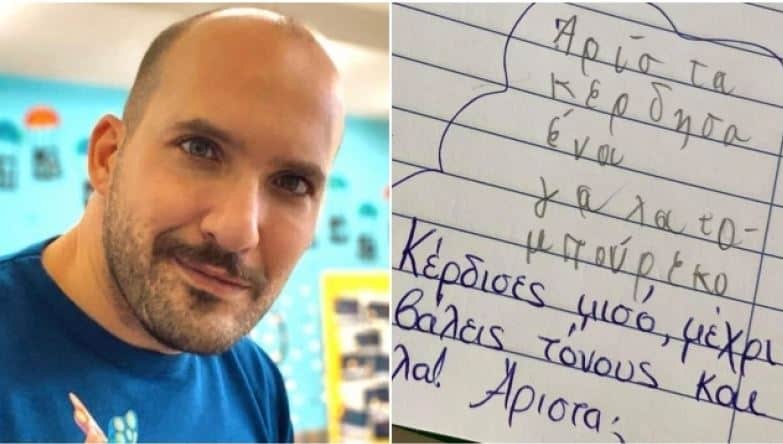 Άρίστα
κέρδησα
ένα
γαλατο-
μπούρεκο
Κέρδισες μισό, μέχρι
βάλεις τόνους και
λα! Άριστα;